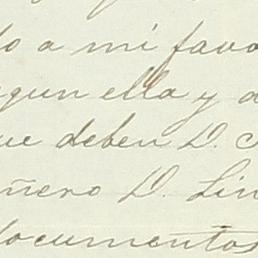 do a mi favo
egun ella y a
ue deben D. S
ñero D. Lin
documentos